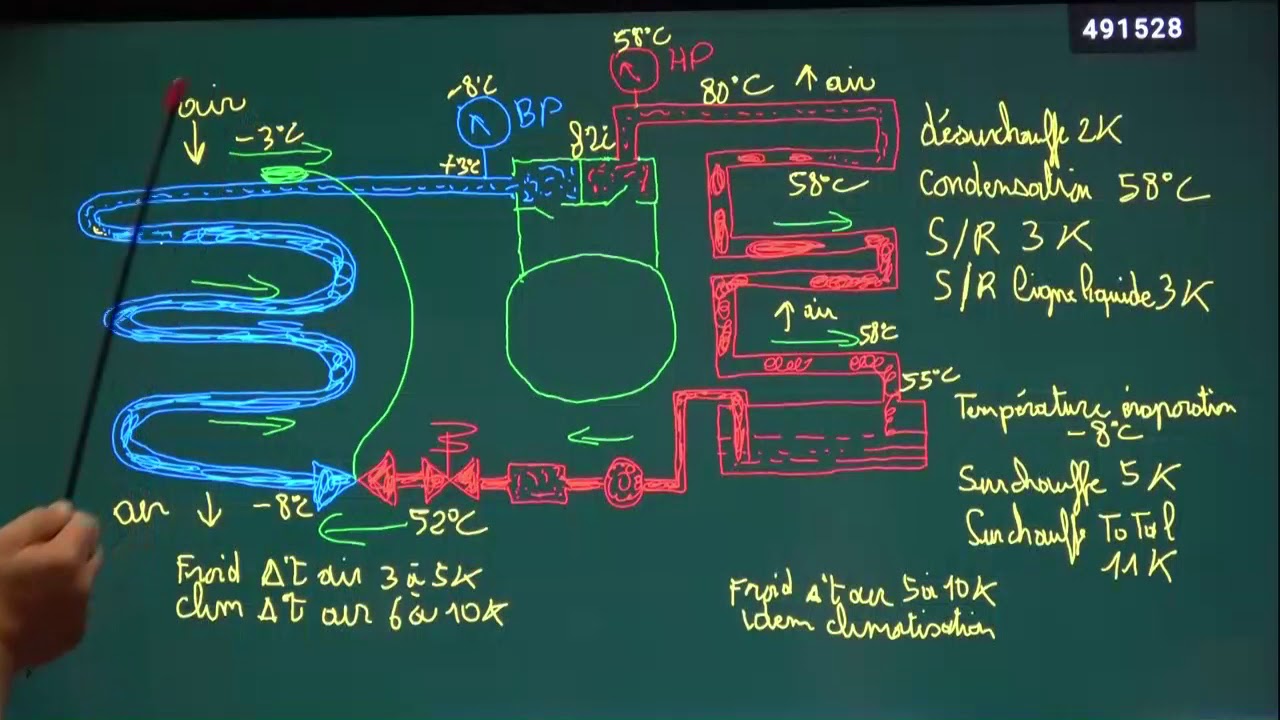 491528
58°C
HP
-8°C
BP
80°C ↑ air
air
-3°C
+3°C
82i
58°C
désurchauffe 2K
Condensation 58°C
S/R 3K
S/R ligne liquide 3K
↑ air
58°C
55°C
Température évaporation
-8°C
Surchauffe 5K
Surchauffe Total
11K
air ↓ -8°C
52°C
Froid Δ't air 3 à 5K
Clim Δ't air 6 à 10K
Froid Δ't air 5 à 10K
Idem climatisation